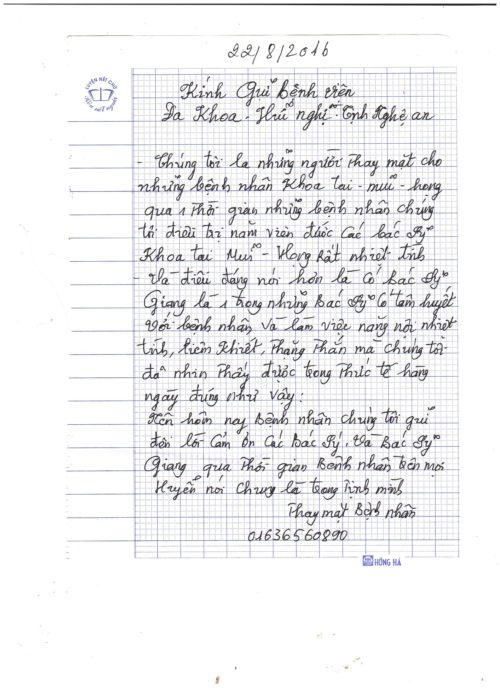 22/8/2016
LUYỆN NÉT CHỮ
Kính Gửi bệnh viện
Đa Khoa - Hữu nghị - Tỉnh Nghệ an
- Chúng tôi là những người Thay mặt cho
những bệnh nhân Khoa tai - mũi - họng
qua 1 Thời gian những bệnh nhân chúng
tôi điều trị nằm viện được Các bác Sỹ
Khoa tai Mũi - Họng Rất nhiệt tình
- Và điều đáng nói hơn là Có Bác Sỹ
Giang là 1 trong những Bác Sỹ Có tâm huyết
Với bệnh nhân Và làm việc năng nổi nhiệt
tình, liêm Khiết, Thẳng Thắn mà chúng tôi
đã nhìn Thấy được trong Thức tế hàng
ngày đúng như Vậy:
Nên hôm nay Bệnh nhân chúng tôi gửi
đến lời Cảm ơn Các Bác Sỹ. Và Bác Sỹ
Giang qua Thời gian Bệnh nhân trên mọi
Huyện nói Chung là trong Tỉnh mình
Thay mặt Bệnh nhân
01636560890
HỒNG HÀ